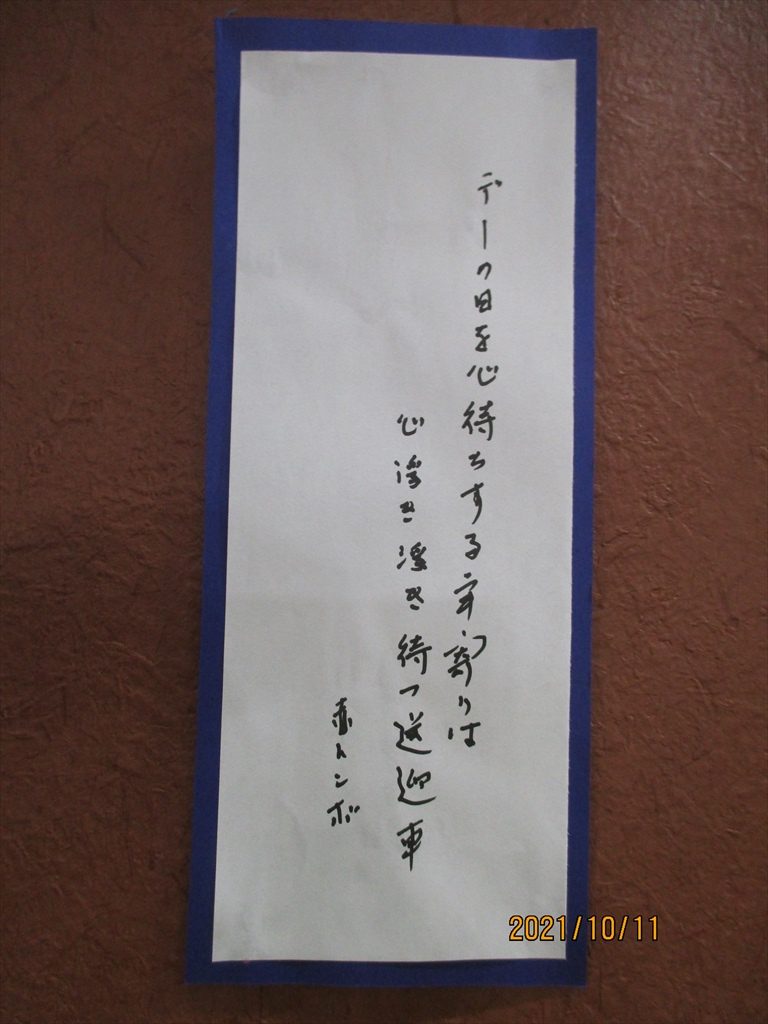 デーの日を心待ちする年寄りは
心浮き浮き待つ送迎車
赤トンボ
2021/10/11